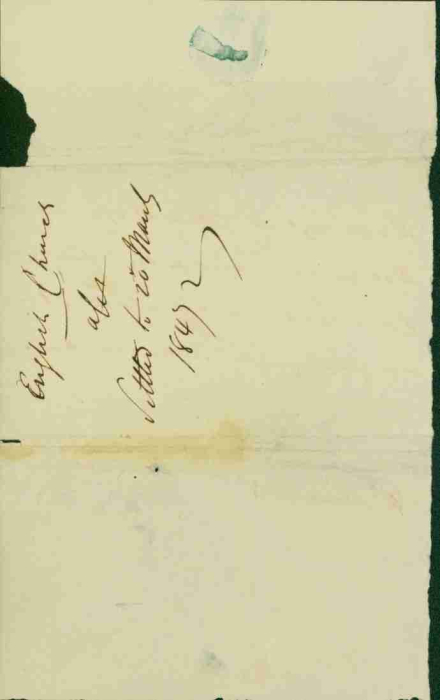 English Church
a/cs
Settled to 20 March
1847